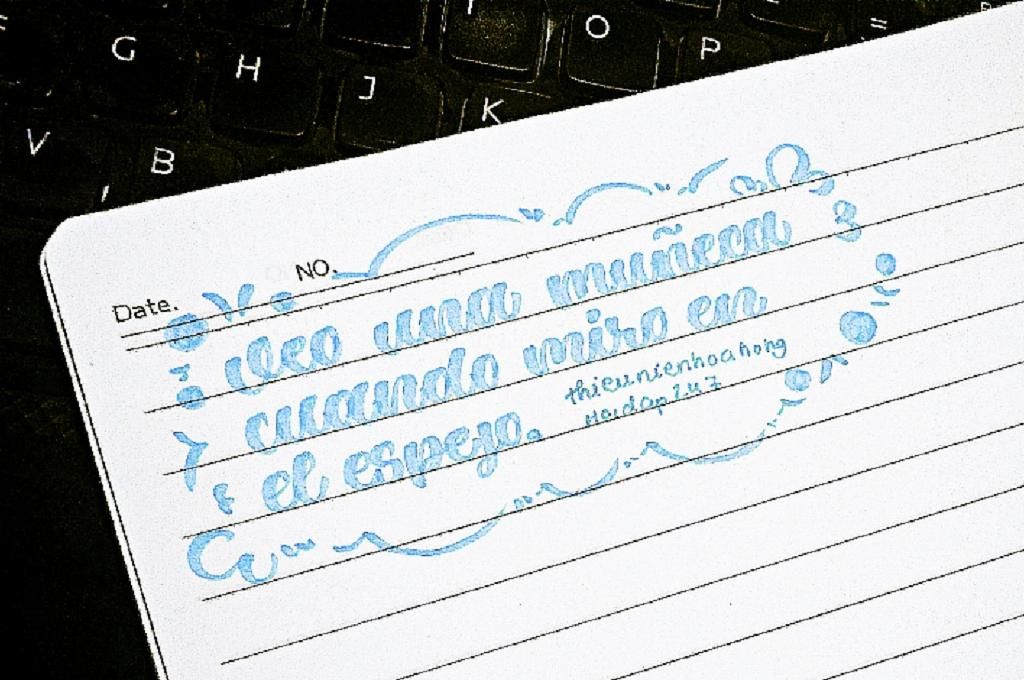 O P =
G H J K
V B
NO.
Date.
Veo una muñeca
cuando miro en
el espejo.
thieunienhoahong
Hoidap247